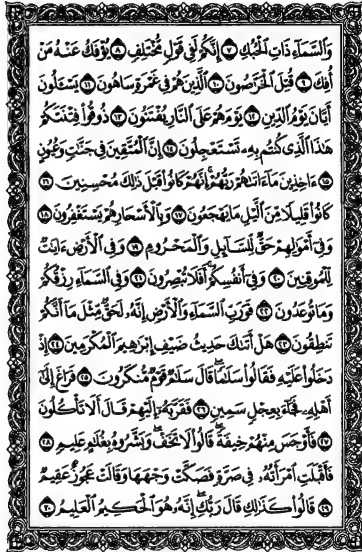 وَٱلسَّمَآءِ ذَاتِ ٱلْحُبُكِ ٧ إِنَّكُمْ لَفِى قَوْلٍ مُّخْتَلِفٍ ٨ يُؤْفَكُ عَنْهُ مَنْ
أُفِكَ ٩ قُتِلَ ٱلْخَرَّٰصُونَ ١٠ ٱلَّذِينَ هُمْ فِى غَمْرَةٍ سَاهُونَ ١١ يَسْـَٔلُونَ
أَيَّانَ يَوْمُ ٱلدِّينِ ١٢ يَوْمَ هُمْ عَلَى ٱلنَّارِ يُفْتَنُونَ ١٣ ذُوقُوا۟ فِتْنَتَكُمْ
هَٰذَا ٱلَّذِى كُنتُم بِهِۦ تَسْتَعْجِلُونَ ١٤ إِنَّ ٱلْمُتَّقِينَ فِى جَنَّٰتٍ وَعُيُونٍ
١٥ ءَاخِذِينَ مَآ ءَاتَىٰهُمْ رَبُّهُمْ إِنَّهُمْ كَانُوا۟ قَبْلَ ذَٰلِكَ مُحْسِنِينَ ١٦
كَانُوا۟ قَلِيلًا مِّنَ ٱلَّيْلِ مَا يَهْجَعُونَ ١٧ وَبِٱلْأَسْحَارِ هُمْ يَسْتَغْفِرُونَ ١٨
وَفِىٓ أَمْوَٰلِهِمْ حَقٌّ لِّلسَّآئِلِ وَٱلْمَحْرُومِ ١٩ وَفِى ٱلْأَرْضِ ءَايَٰتٌ
لِّلْمُوقِنِينَ ٢٠ وَفِىٓ أَنفُسِكُمْ أَفَلَا تُبْصِرُونَ ٢١ وَفِى ٱلسَّمَآءِ رِزْقُكُمْ
وَمَا تُوعَدُونَ ٢٢ فَوَرَبِّ ٱلسَّمَآءِ وَٱلْأَرْضِ إِنَّهُۥ لَحَقٌّ مِّثْلَ مَآ أَنَّكُمْ
تَنطِقُونَ ٢٣ هَلْ أَتَىٰكَ حَدِيثُ ضَيْفِ إِبْرَٰهِيمَ ٱلْمُكْرَمِينَ ٢٤ إِذْ
دَخَلُوا۟ عَلَيْهِ فَقَالُوا۟ سَلَٰمًا قَالَ سَلَٰمٌ قَوْمٌ مُّنكَرُونَ ٢٥ فَرَاغَ إِلَىٰٓ
أَهْلِهِۦ فَجَآءَ بِعِجْلٍ سَمِينٍ ٢٦ فَقَرَّبَهُۥٓ إِلَيْهِمْ قَالَ أَلَا تَأْكُلُونَ
٢٧ فَأَوْجَسَ مِنْهُمْ خِيفَةً قَالُوا۟ لَا تَخَفْ وَبَشَّرُوهُ بِغُلَٰمٍ عَلِيمٍ ٢٨
فَأَقْبَلَتِ ٱمْرَأَتُهُۥ فِى صَرَّةٍ فَصَكَّتْ وَجْهَهَا وَقَالَتْ عَجُوزٌ عَقِيمٌ
٢٩ قَالُوا۟ كَذَٰلِكِ قَالَ رَبُّكِ إِنَّهُۥ هُوَ ٱلْحَكِيمُ ٱلْعَلِيمُ ٣٠